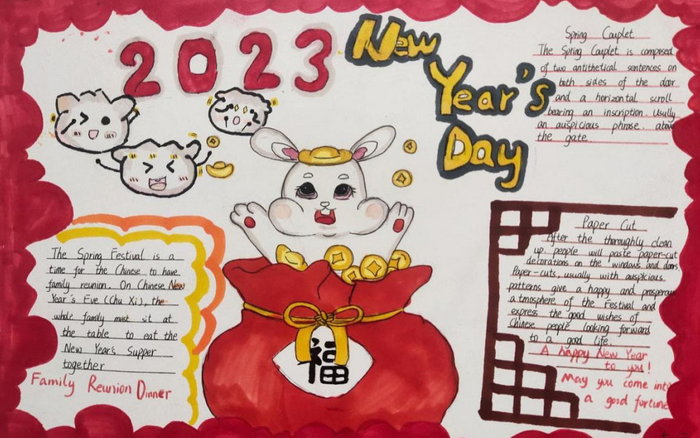 2023
New
Year's
Day
Spring Couplet
The Spring Couplet is composed
of two antithetical sentences on
both sides of the door
and a horizontal scroll
bearing an inscription. Usually
an auspicious phrase, above
the gate.
The Spring Festival is a
time for the Chinese to have
family reunion. On Chinese New
Year's Eve (Chu Xi), the
whole family must sit at
the table to eat the
New Year's Supper
together
Family Reunion Dinner
福
Paper Cut
After the thoroughly clean
up people will paste paper-cut
decorations on the windows and doors
Paper-cuts, usually with auspicious
patterns give a happy and prosperous
atmosphere of the Festival and
express the good wishes of
Chinese people looking forward
to a good life.
A happy New Year
to you!
May you come into
a good fortune